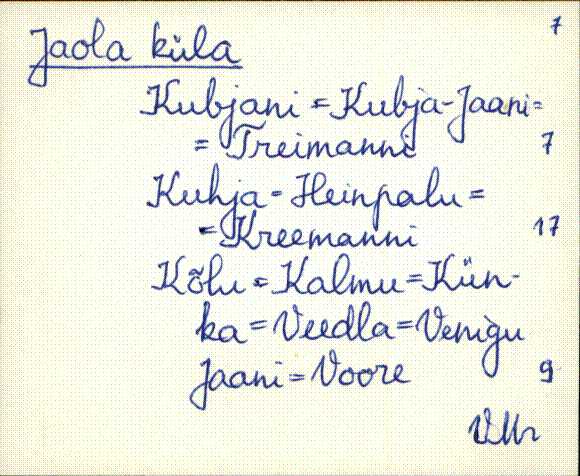 7
Jaola küla
Kubjani = Kubja-Jaani =
= Treimanni 7
Kuhja - Heinpalu =
= Kreemanni 17
Kõlu = Kalmu = Kün-
ka = Veedla = Venigu
Jaani = Voore 9